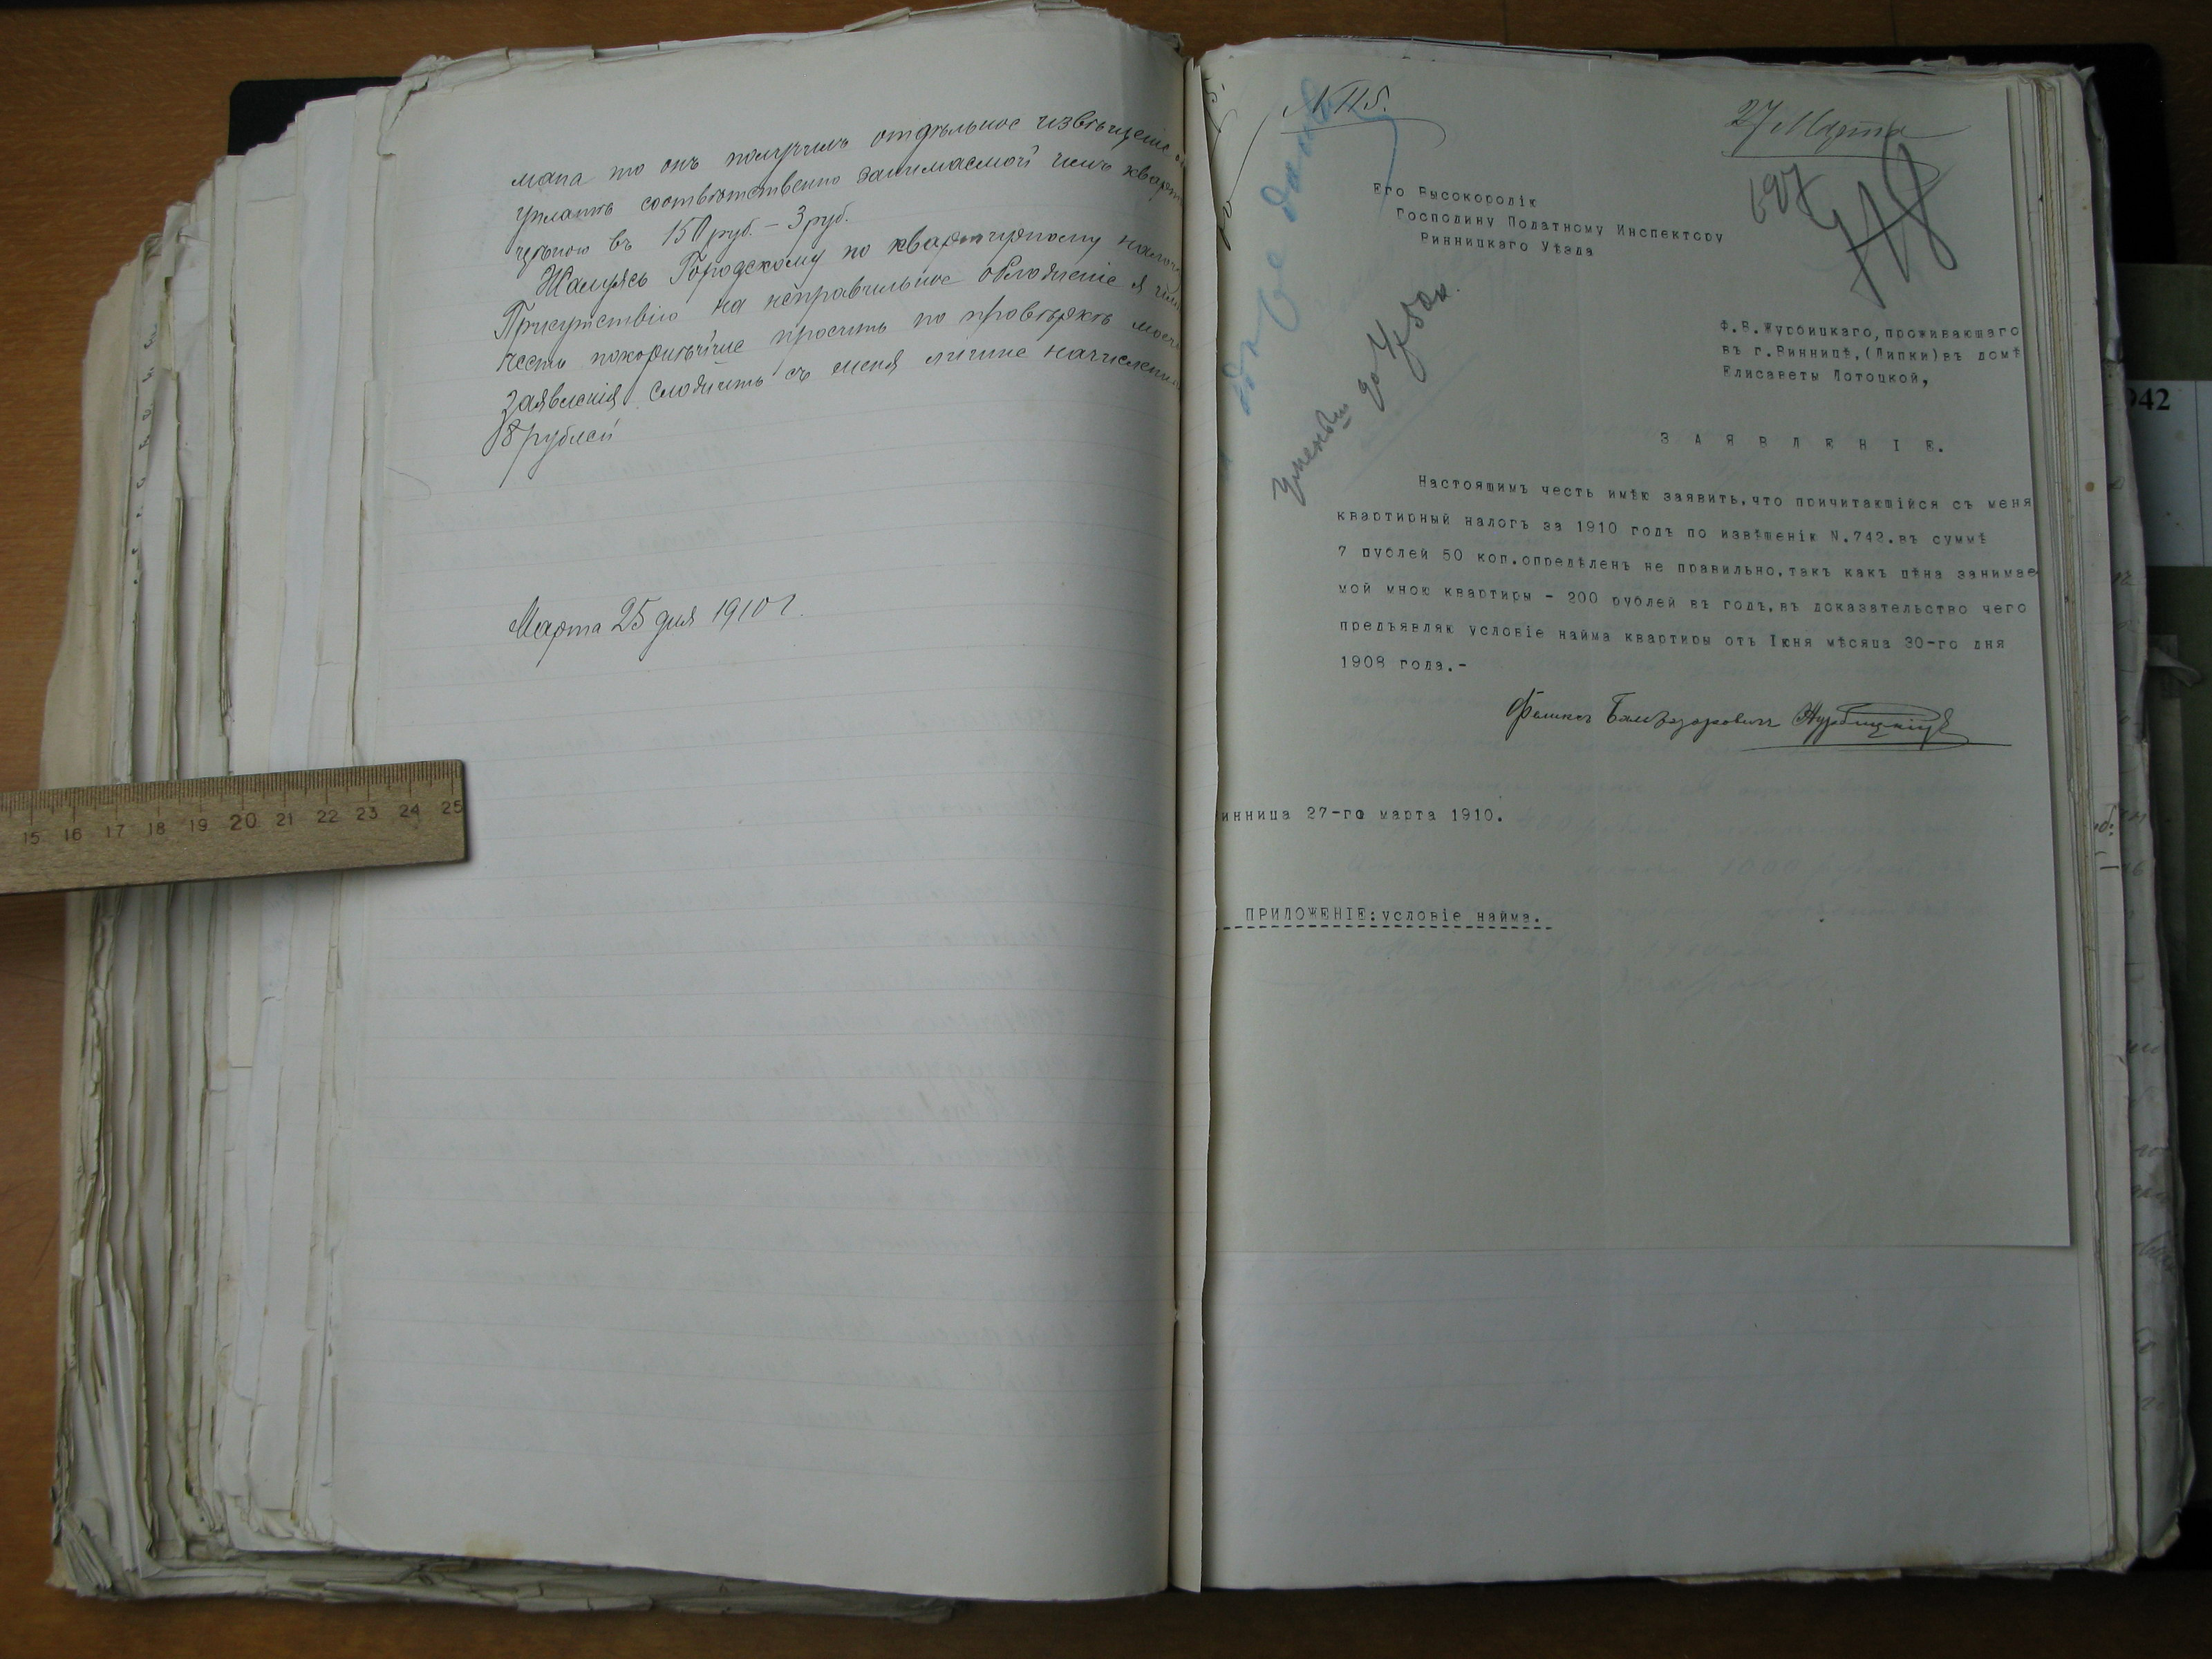 мана то онъ получилъ отдѣльное извѣщеніе
уплатѣ соотвѣтственно занимаемой имъ кварт
цѣною въ 150 руб. – 3 руб.
Жалуясь Городскому по квартирному налогу
Присутствію на неправильное обложеніе я имѣю
честь покорнѣйше просить по провѣркѣ моего
заявленія сложить съ меня лишне начисленные
18 рублей
Марта 25 дня 1910 г.
15 16 17 18 19 20 21 22 23 24 25
№ 115.
27 Марта
697
Его Высокородію
Господину Податному Инспектору
Винницкаго Уѣзда
Уменьш до 7 р 50 к.
Ф.В.Журбицкаго, проживающаго
въ г.Винницѣ,(Липки)въ домѣ
Елисаветы Потоцкой,
ЗАЯВЛЕНІЕ.
Настоящимъ честь имѣю заявить,что причитающійся съ меня
квартирный налогъ за 1910 годъ по извѣщенію N.742.въ суммѣ
7 рублей 50 коп.опредѣленъ не правильно,такъ какъ цѣна занимае
мой мною квартиры - 200 рублей въ годъ,въ доказательство чего
предъявляю условіе найма квартиры отъ Іюня мѣсяца 30-го дня
1908 года.-
Феликсъ Бальтазаровичъ Журбицкій
инница 27-го марта 1910.
ПРИЛОЖЕНІЕ:условіе найма.
942